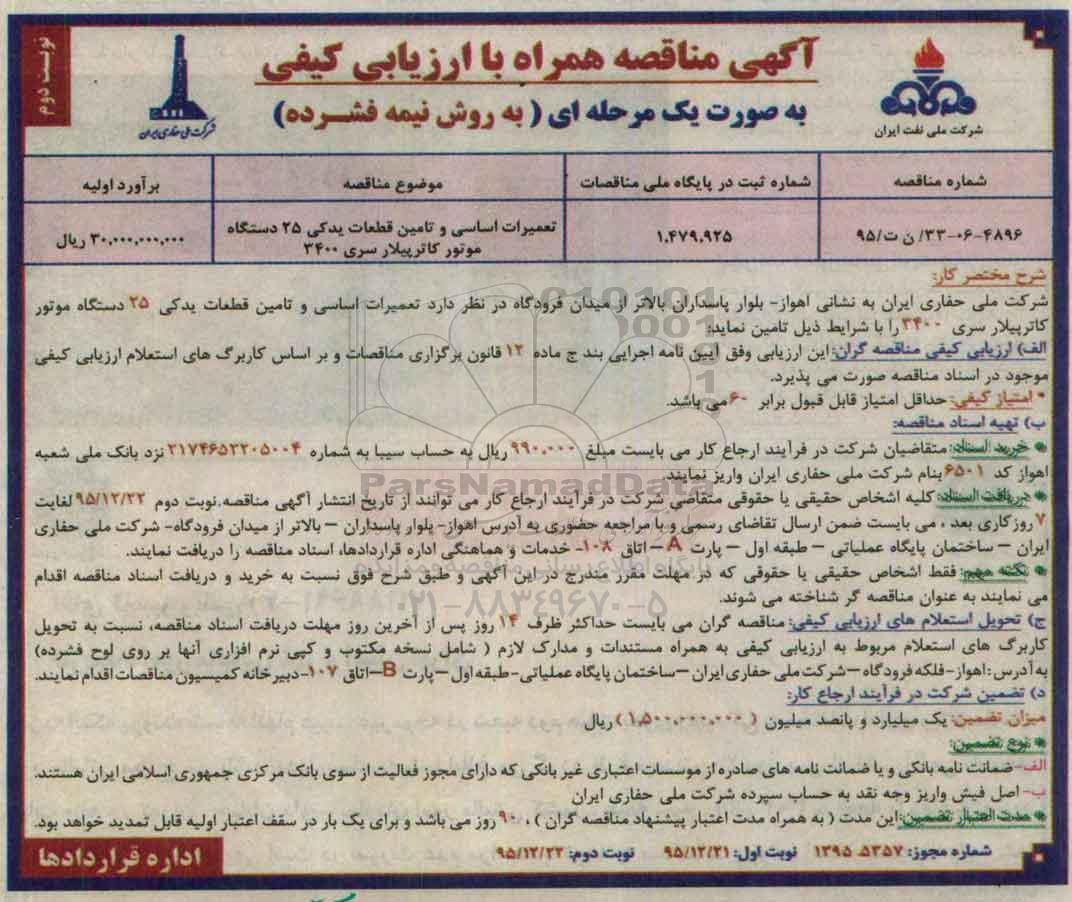 نوبت دوم
آگهی مناقصه همراه با ارزیابی کیفی
به صورت یک مرحله ای ( به روش نیمه فشرده)
شرکت ملی نفت ایران
شرکت ملی حفاری ایران
شماره مناقصه
شماره ثبت در پایگاه ملی مناقصات
موضوع مناقصه
برآورد اولیه
۳۳-۰۶-۴۸۹۶/ ن ت/۹۵
۱.۴۷۹.۹۲۵
تعمیرات اساسی و تامین قطعات یدکی ۲۵ دستگاه
موتور کاترپیلار سری ۳۴۰۰
۳۰,۰۰۰,۰۰۰,۰۰۰ ریال
شرح مختصر کار:
شرکت ملی حفاری ایران به نشانی اهواز- بلوار پاسداران بالاتر از میدان فرودگاه در نظر دارد تعمیرات اساسی و تامین قطعات یدکی ۲۵ دستگاه موتور
کاترپیلار سری ۳۴۰۰ را با شرایط ذیل تامین نماید:
الف) ارزیابی کیفی مناقصه گران: این ارزیابی وفق آیین نامه اجرایی بند ج ماده ۱۲ قانون برگزاری مناقصات و بر اساس کاربرگ های استعلام ارزیابی کیفی
موجود در اسناد مناقصه صورت می پذیرد.
* امتیاز کیفی: حداقل امتیاز قابل قبول برابر ۶۰ می باشد.
ب) تهیه اسناد مناقصه:
* خرید اسناد: متقاضیان شرکت در فرآیند ارجاع کار می بایست مبلغ ۹۹۰.۰۰۰ ریال به حساب سیبا به شماره ۲۱۷۴۶۵۳۲۰۵۰۰۴ نزد بانک ملی شعبه
اهواز کد ۶۵۰۱ بنام شرکت ملی حفاری ایران واریز نمایند
* دریافت اسناد: کلیه اشخاص حقیقی یا حقوقی متقاضی شرکت در فرآیند ارجاع کار می توانند از تاریخ انتشار آگهی مناقصه.نوبت دوم ۹۵/۱۲/۲۲ لغایت
۷ روز کاری بعد ، می بایست ضمن ارسال تقاضای رسمی و با مراجعه حضوری به آدرس اهواز- بلوار پاسداران – بالاتر از میدان فرودگاه- شرکت ملی حفاری
ایران – ساختمان پایگاه عملیاتی – طبقه اول – پارت A – اتاق ۱۰۸- خدمات و هماهنگی اداره قراردادها، اسناد مناقصه را دریافت نمایند.
* نکته مهم: فقط اشخاص حقیقی یا حقوقی که در مهلت مقرر مندرج در این آگهی و طبق شرح فوق نسبت به خرید و دریافت اسناد مناقصه اقدام
می نمایند به عنوان مناقصه گر شناخته می شوند.
ج) تحویل استعلام های ارزیابی کیفی: مناقصه گران می بایست حداکثر ظرف ۱۴ روز پس از آخرین روز مهلت دریافت اسناد مناقصه، نسبت به تحویل
کاربرگ های استعلام مربوط به ارزیابی کیفی به همراه مستندات و مدارک لازم ( شامل نسخه مکتوب و کپی نرم افزاری آنها بر روی لوح فشرده)
به آدرس: اهواز- فلکه فرودگاه – شرکت ملی حفاری ایران – ساختمان پایگاه عملیاتی- طبقه اول – پارت B – اتاق ۱۰۷- دبیرخانه کمیسیون مناقصات اقدام نمایند.
د) تضمین شرکت در فرآیند ارجاع کار:
میزان تضمین: یک میلیارد و پانصد میلیون ( ۱,۵۰۰,۰۰۰,۰۰۰ ) ریال
* نوع تضمین:
الف- ضمانت نامه بانکی و یا ضمانت نامه های صادره از موسسات اعتباری غیر بانکی که دارای مجوز فعالیت از سوی بانک مرکزی جمهوری اسلامی ایران هستند.
ب- اصل فیش واریز وجه نقد به حساب سپرده شرکت ملی حفاری ایران
* مدت اعتبار تضمین: این مدت ( به همراه مدت اعتبار پیشنهاد مناقصه گران ) ، ۹۰ روز می باشد و برای یک بار در سقف اعتبار اولیه قابل تمدید خواهد بود.
شماره مجوز: ۵۳۵۷. ۱۳۹۵ نوبت اول: ۹۵/۱۲/۲۱ نوبت دوم: ۹۵/۱۲/۲۲
اداره قراردادها
ParsNamadData
۰۲۱-۸۸۳۴۹۶۷۰-۵